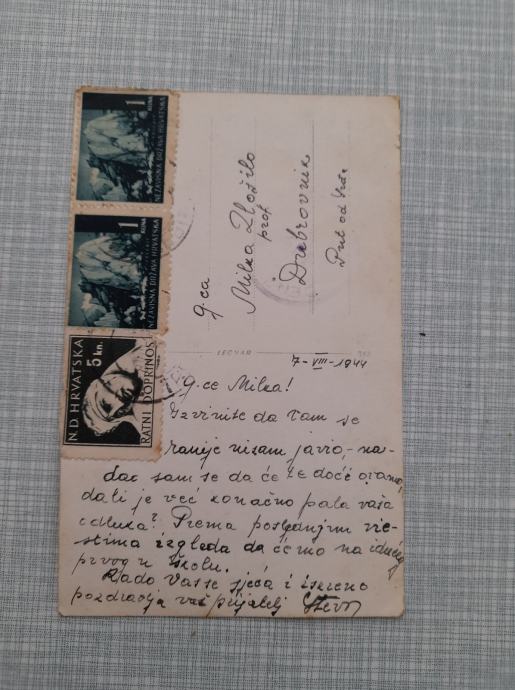 1
KUNA
NEZAVISNA DRŽAVA HRVATSKA
1
KUNA
NEZAVISNA DRŽAVA HRVATSKA
N.D. HRVATSKA
5 kn.
RATNI DOPRINOS
g.ca
Milka
prof.
Dubrovnik
Put od
7-VIII-1944
G.ce Milka!
Izvinite da Vam se
ranije nisam javio,- na-
dao sam se da će te doći ovamo,
da li je već konačno pala vaša
odluka? Prema posljednjim vije-
stima izgleda da ćemo na idućeg
prvog u školu.
Rado Vas se sjeća i iskreno
pozdravlja vaš prijatelj